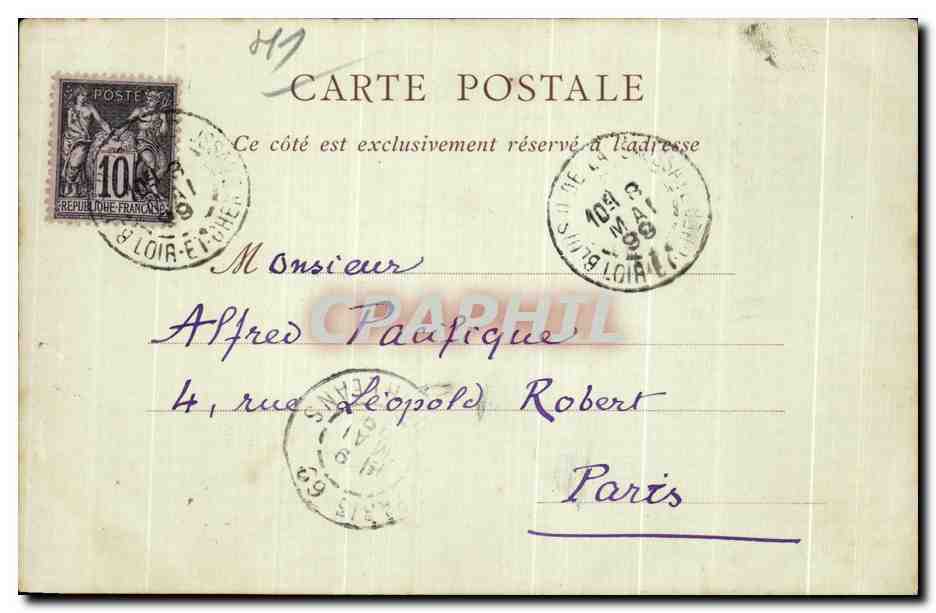 41
CARTE POSTALE
Ce côté est exclusivement réservé à l'adresse
POSTE
10
REPUBLIQUE FRANÇAISE
LOIR-ET-CHER
BLOIS DE LA
8
MAI
99
LOIR-ET-CHER
Monsieur
CPAPHIL
Alfred Pacifique
4, rue Léopold Robert
PARIS 62
Paris